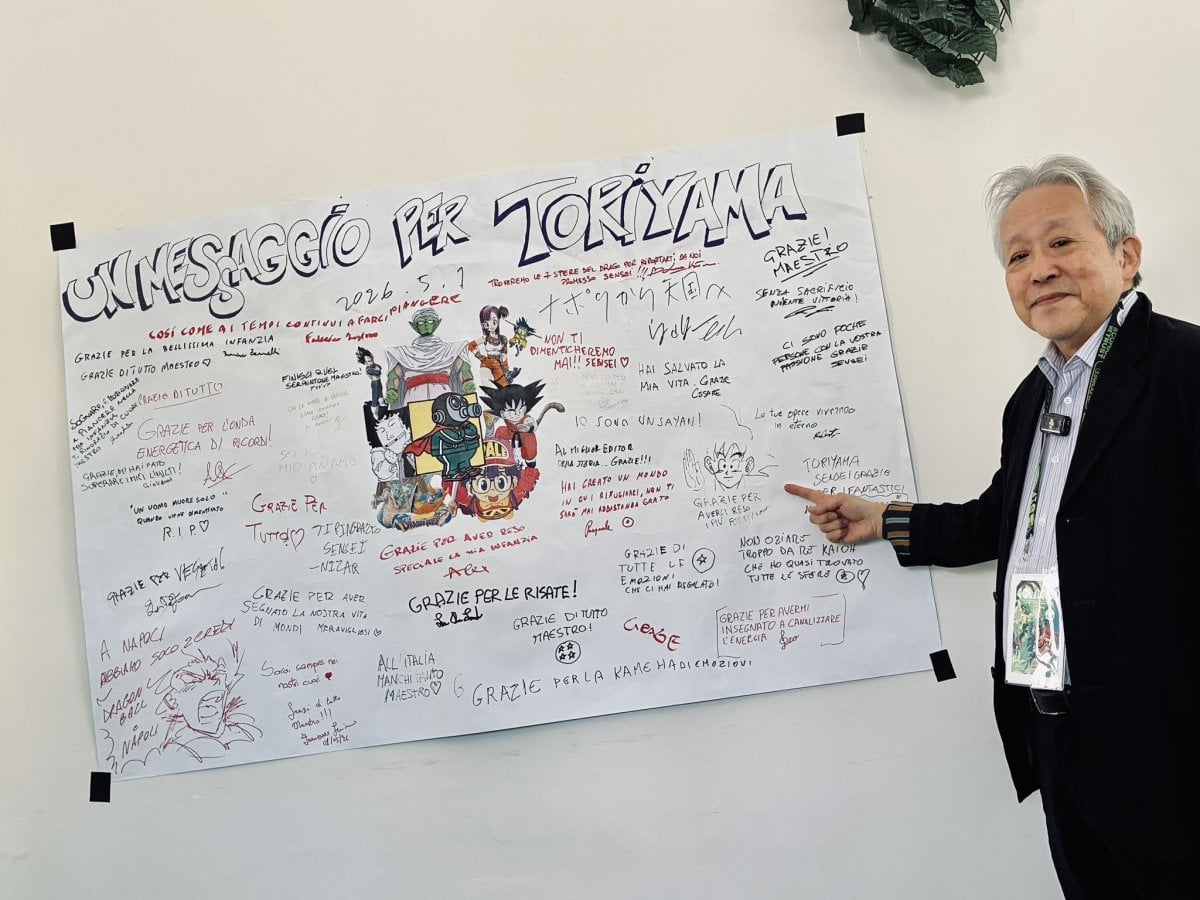 UN MESSAGGIO PER TORIYAMA
2026.5.1
TROVEREMO LE 7 SFERE DEL DRAGO PER RIPORTARTI DA NOI
PROMESSO SENSEI!!!
GRAZIE!
MAESTRO
COSÍ COME AI TEMPI CONTINUI A FARCI PIANGERE
ナポリから天国へ
SENZA SACRIFICIO
NIENTE VITTORIA!
GRAZIE PER LA BELLISSIMA INFANZIA
GRAZIE DI TUTTO MAESTRO♡
NON TI
DIMENTICHEREMO
MAI!! SENSEI♡
CI SONO POCHE
PERSONE CON LA VOSTRA
PASSIONE. GRAZIE
SENSEI
HAI SALVATO LA
MIA VITA. GRAZIE
CESARE
GRAZIE DI TUTTO
SEI IL
MIO ANGELO
IO SONO UN SAYAN!
Le tue opere vivranno
in eterno
GRAZIE PER L'ONDA
ENERGETICA DI RICORDI!
AL MIGLIOR EDITOR
DELLA STORIA. GRAZIE!!!
HAI CREATO UN MONDO
IN CUI RIFUGIARCI, NON TI
SARÒ MAI ABBASTANZA GRATO
Pasquale
GRAZIE, MI HAI FATO
SUPERARE I MIEI LIMITI!
Giovanni
TORIYAMA
SENSEI GRAZIE
FANTASTICI
GRAZIE PER
AVERCI RESO
I PIÙ FORTI!
"UN UOMO MUORE SOLO
QUANDO VIENE DIMENTICATO"
R.I.P♡
GRAZIE PER
TUTTO!♡
TI RINGRAZIO
SENSEI
-NIZAR
GRAZIE PER AVER RESO
SPECIALE LA MIA INFANZIA
Alex
GRAZIE DI
TUTTE LE
EMOZIONI
CHE CI HAI REGALATO!
NON OZIARE
TROPPO DA RE KAIOH
CHE HO QUASI TROVATO
TUTTE LE SFERE
GRAZIE PER VEGETA!
GRAZIE PER AVER
SEGNATO LA NOSTRA VITA
DI MONDI MERAVIGLIOSI♡
GRAZIE PER LE RISATE!
GRAZIE DI TUTTO
MAESTRO!
GRAZIE
GRAZIE PER AVERMI
INSEGNATO A CANALIZZARE
L'ENERGIA
A NAPOLI
ABBIAMO SOLO 2 CREDI
DRAGON
BALL
NAPOLI
Sarai sempre nei
nostri cuori
ALL'ITALIA
MANCHI TANTO
MAESTRO♡
GRAZIE PER LA KAMEHA DI EMOZIONI
Grazie di tutto
Maestro!!!